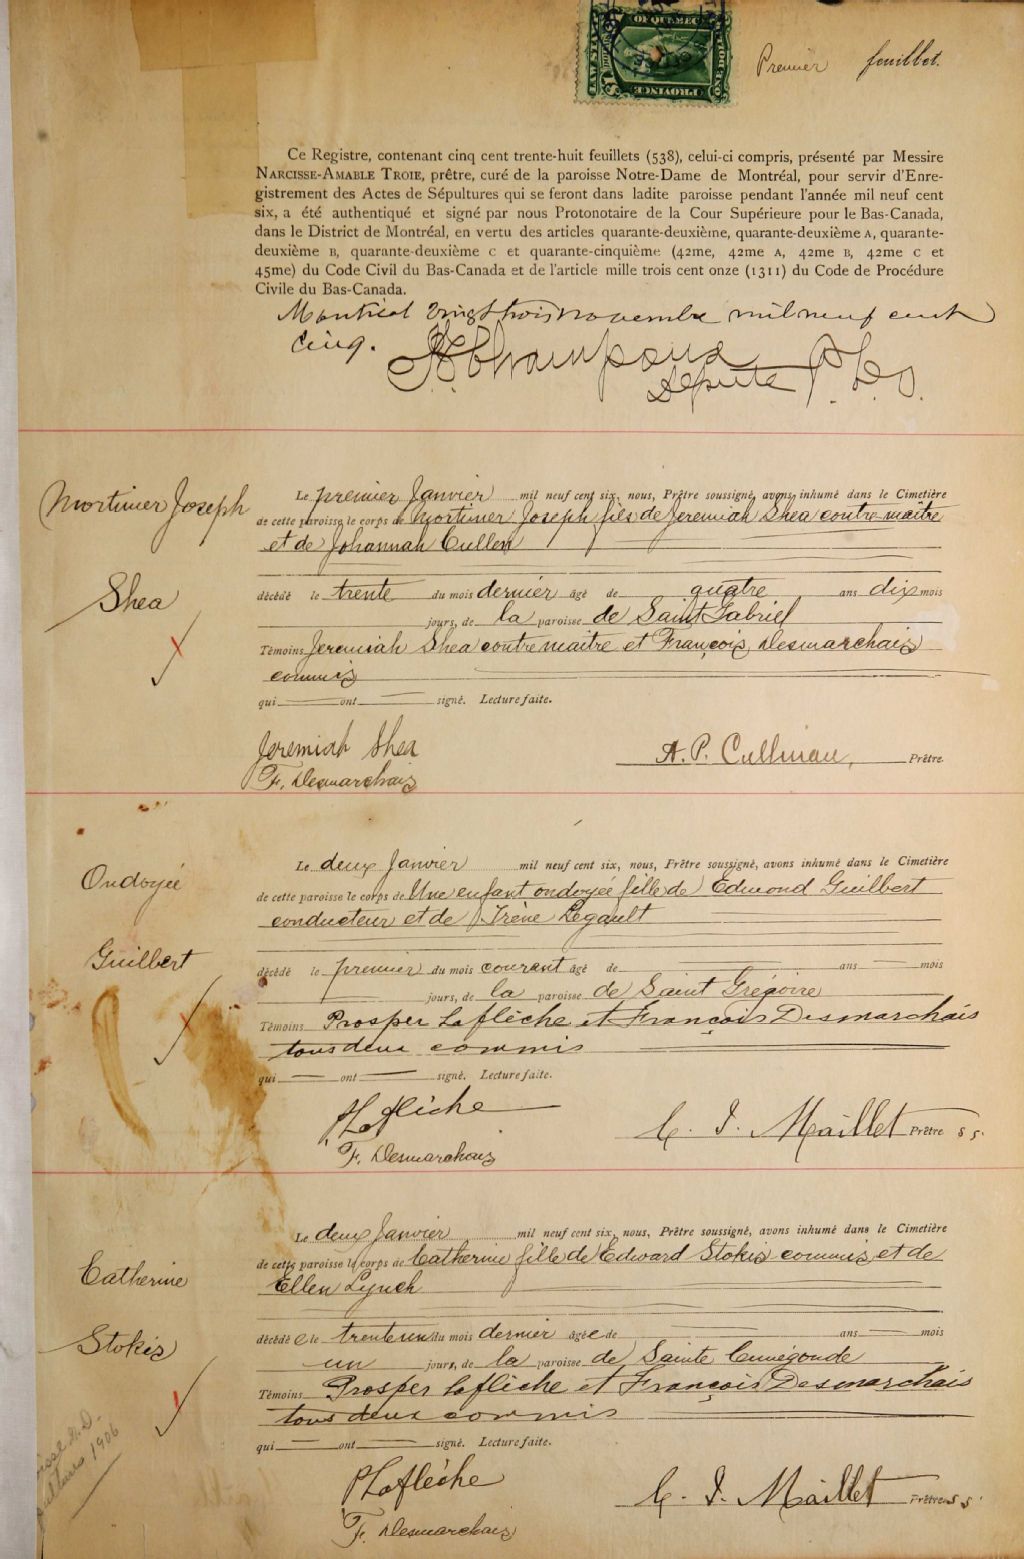 OF QUEBEC
LAW STAMP
ONE DOLLAR
PROVINCE
$1
Premier feuillet.
Ce Registre, contenant cinq cent trente-huit feuillets (538), celui-ci compris, présenté par Messire
NARCISSE-AMABLE TROIE, prêtre, curé de la paroisse Notre-Dame de Montréal, pour servir d'Enre-
gistrement des Actes de Sépultures qui se feront dans ladite paroisse pendant l'année mil neuf cent
six, a été authentiqué et signé par nous Protonotaire de la Cour Supérieure pour le Bas-Canada,
dans le District de Montréal, en vertu des articles quarante-deuxième, quarante-deuxième A, quarante-
deuxième B, quarante-deuxième C et quarante-cinquième (42me, 42me A, 42me B, 42me C et
45me) du Code Civil du Bas-Canada et de l'article mille trois cent onze (1311) du Code de Procédure
Civile du Bas-Canada.
Montréal vingt trois novembre mil neuf cent
cinq.
Champoux
Député P.C.S.
Mortimer Joseph
Shea
Le premier Janvier mil neuf cent six, nous, Prêtre soussigné, avons inhumé dans le Cimetière
de cette paroisse le corps de Mortimer Joseph fils de Jeremiah Shea contre maître
et de Johannah Cullen
décédé le trente du mois dernier âgé de quatre ans dix mois
jours, de la paroisse de Saint Gabriel
Témoins Jeremiah Shea contre maître et François Desmarchais
commis
qui ont signé. Lecture faite.
Jeremiah Shea
F. Desmarchais
A. P. Cullinan, Prêtre.
Ondoyée
Guilbert
Le deux Janvier mil neuf cent six, nous, Prêtre soussigné, avons inhumé dans le Cimetière
de cette paroisse le corps de Une enfant ondoyée fille de Edmond Guilbert
conducteur et de Irène Legault
décédé le premier du mois courant âgé de ans mois
jours, de la paroisse de Saint Grégoire
Témoins Prosper Laflèche et François Desmarchais
tous deux commis
qui ont signé. Lecture faite.
PLaflèche
F. Desmarchais
C. J. Maillet Prêtre s s.
Catherine
Stokis
Le deux Janvier mil neuf cent six, nous, Prêtre soussigné, avons inhumé dans le Cimetière
de cette paroisse le corps de Catherine fille de Edward Stokis commis et de
Ellen Lynch
décédée le trente un du mois dernier âgée de ans mois
un jours, de la paroisse de Sainte Cunégonde
Témoins Prosper Laflèche et François Desmarchais
tous deux commis
qui ont signé. Lecture faite.
PLaflèche
F. Desmarchais
C. J. Maillet Prêtre s s.
N.D.
1906